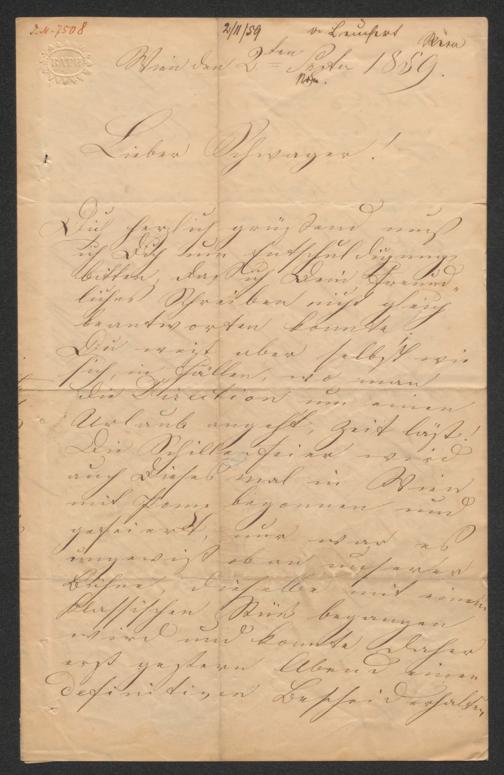 I.N. 7508
2/11/59
Wien
BATH
Wien den 2ten Septr 1859.
Nov.
Lieber Schwager!
Dich herzlich grüßend muß
ich Dich um Entschuldigung
bitten, daß ich Dein freund-
liches Schreiben nicht gleich
beantworten konnte.
Du weißt aber selbst wie
sich, in Fällen, wo man
die Direction um einen
Urlaub angeht, Zeit läßt!
Die Schillerfeier wird
auch dieses mal in Wien
mit Pomp begonnen und
gefeiert, nur war es
ungewiß ob an unserer
Bühne, dieselbe mit einem
klassischen Stück begangen
wird und konnte daher
erst gestern Abend einen
definitiven Bescheid erhalten